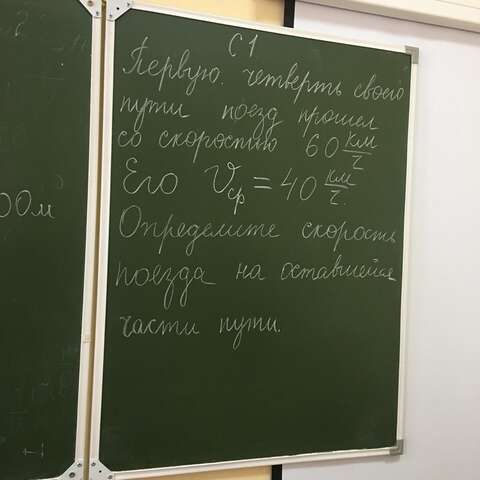 С1
Первую четверть своего
пути поезд прошел
со скоростью 60 км/ч
Его Vср = 40 км/ч.
Определите скорость
поезда на оставшейся
части пути.
00м